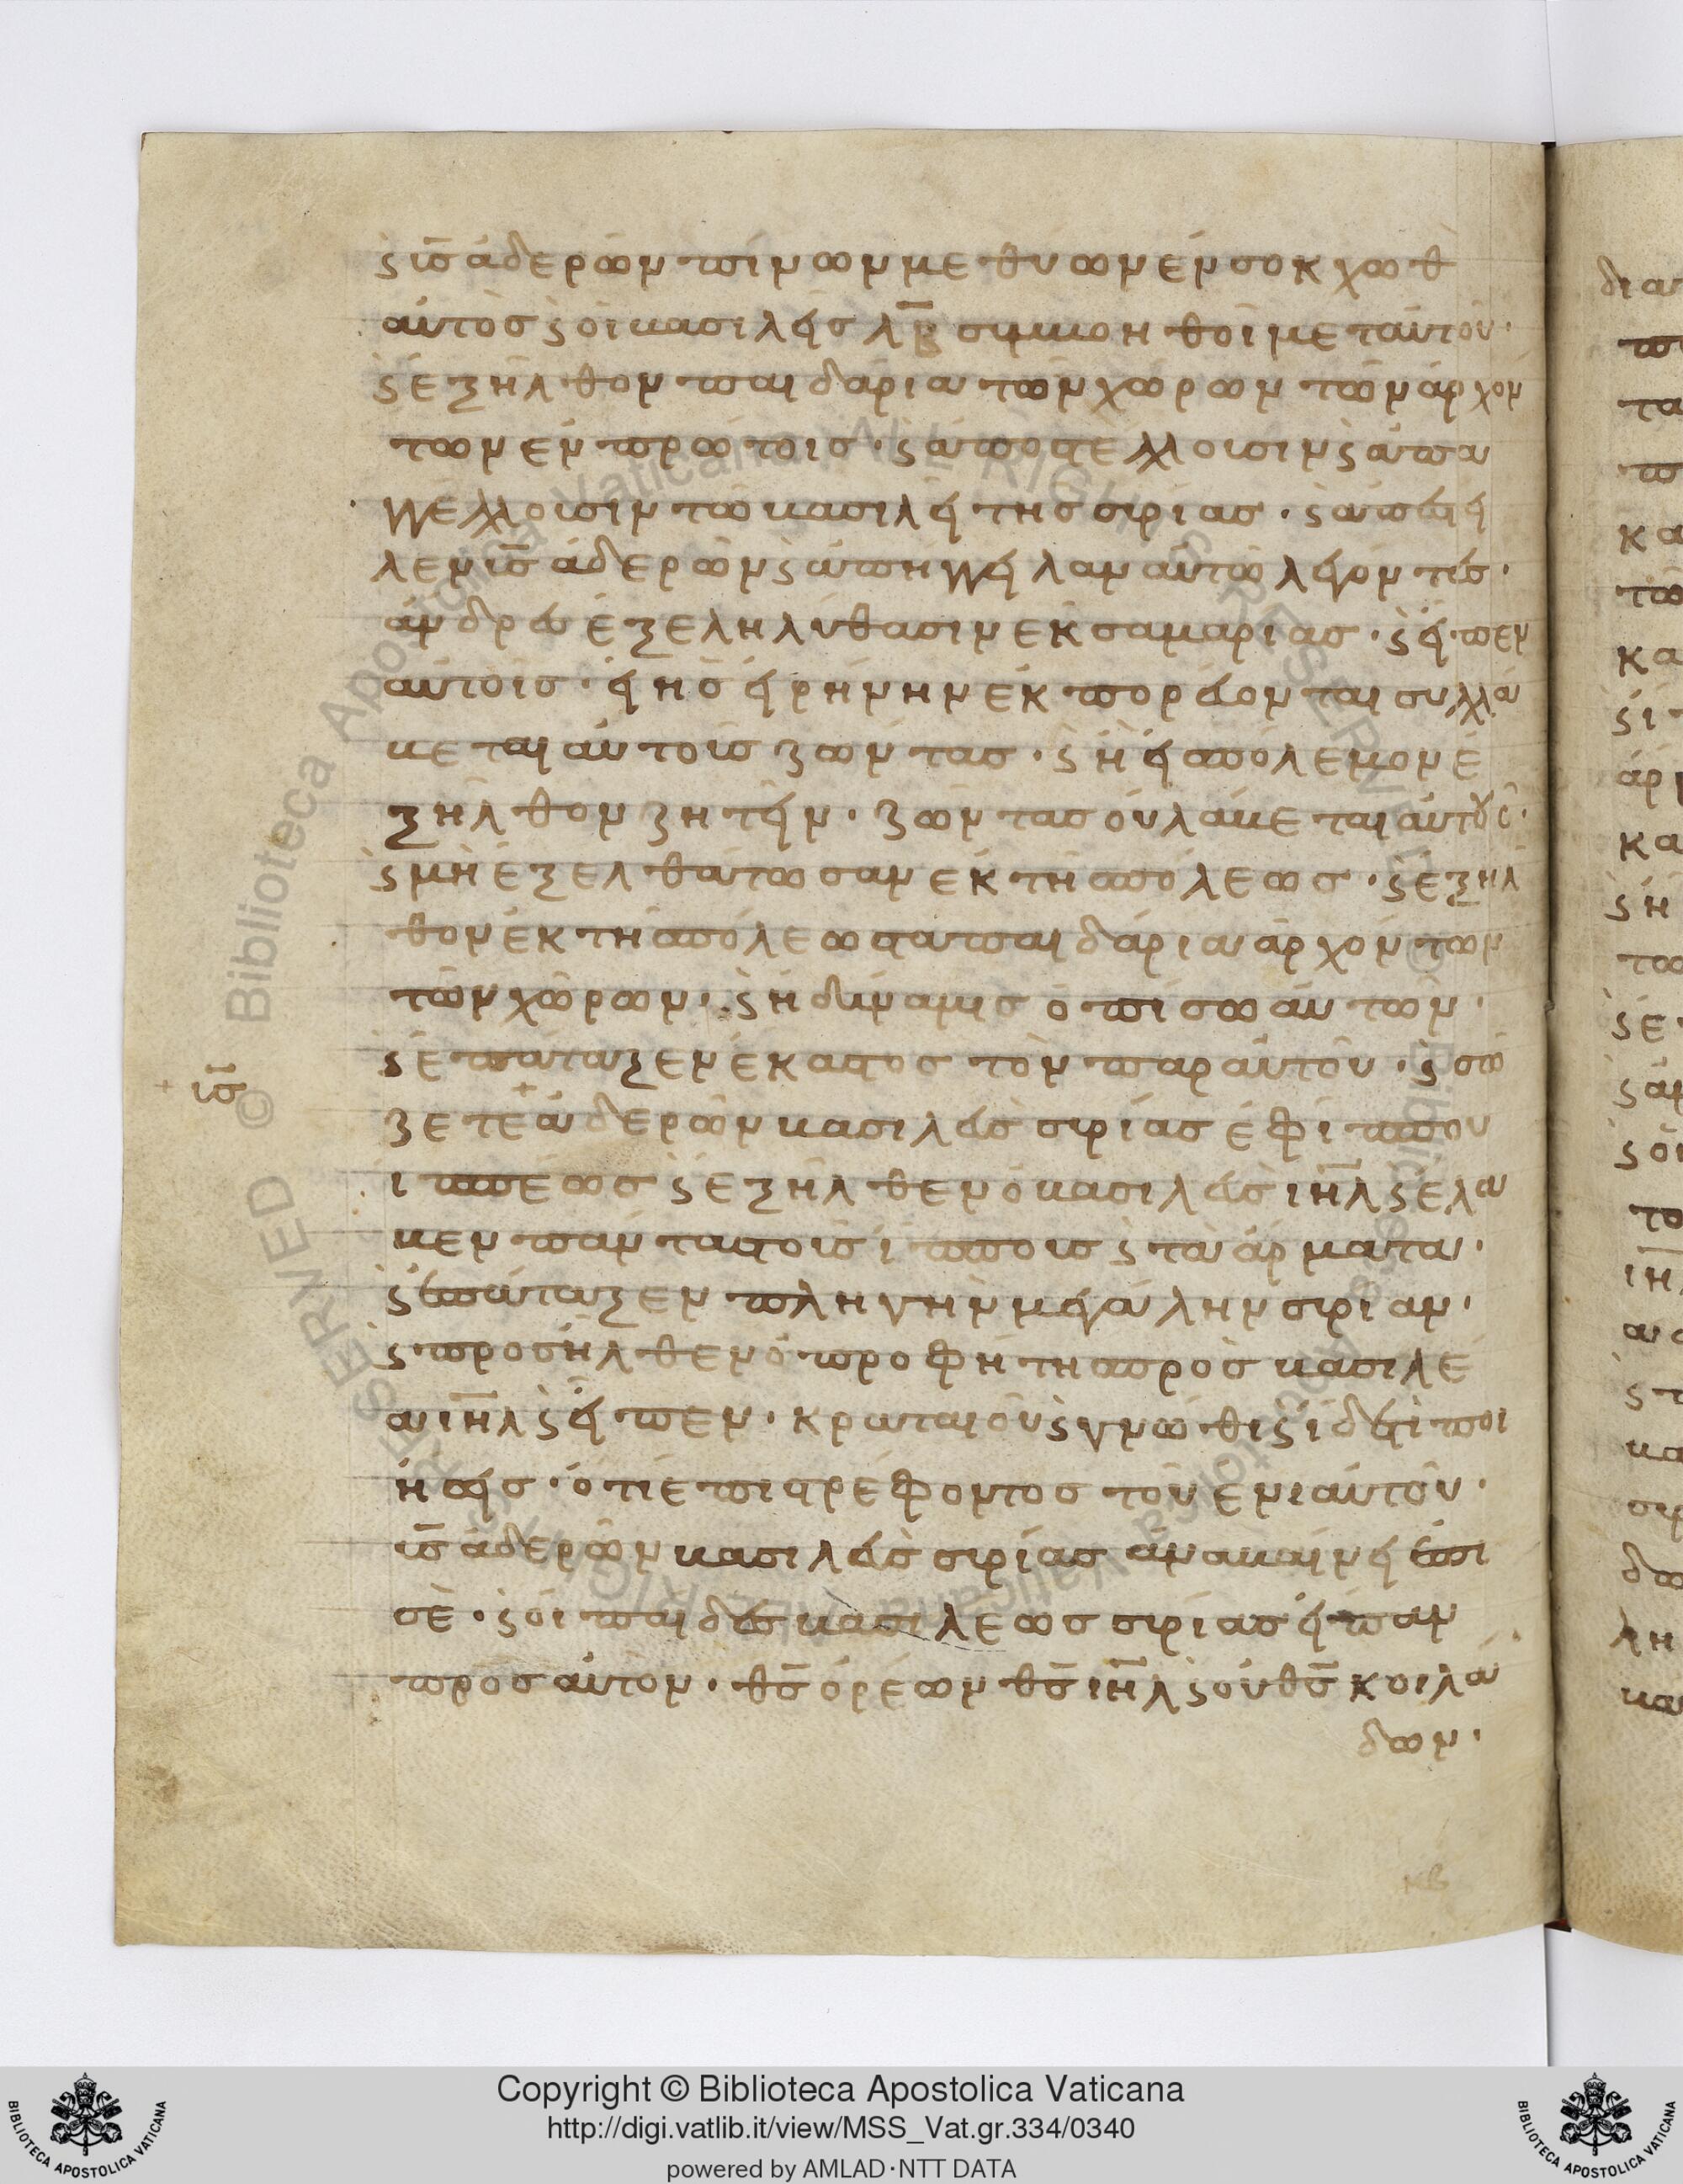 ϛ υἱ̅σ ἀδερὼν πίνων μεθύων ἐν σοκχωθ
αὐτὸσ ϛ οἱ βασιλεῖσ λ̅β̅ συμβοηθοὶ μετ αὐτοῦ·
ϛ ἐξῆλθον παιδάρια τῶν χωρῶν τῶν ἀρχον
των ἐν πρώτοισ· ϛ ἀποστέλλουσιν ϛ ἀπα
γγέλλουσιν τῶ βασιλεῖ τῆσ συρίασ· ϛ ἀπέστει
λεν υἱ̅σ ἀδερὼν ϛ ἀπηγγειλαν αὐτῶ λέγοντεσ·
ἄνδρεσ ἐξεληλύθασιν ἐκ σαμαρίασ· ϛ εἶπεν
αὐτοῖσ· εἰ ἠσ εἰρήνην ἐκπορεύονται συλλά
βεται αὐτοὺσ ζῶντασ· ϛ ἢ εἰσ πόλεμον ἐ
ξῆλθον ζητεῖν· ζῶντασ οὐ λάβεται αὐτούσ·
ϛ μὴ ἐξελθάτωσαν ἐκ τῆσ πόλεωσ· ϛ ἐξῆλ
θον ἐκ τῆσ πόλεωσ τα παιδάρια ἀρχόντων
τῶν χωρῶν· ϛ ἡ δύναμισ ὀπίσω αὐτῶν·
ϛ ἐπάταξεν ἕκαστοσ τὸν παρ αὐτοῦ· ϛ σώ
ζετε + ἀδερὼν βασιλεὺσ συρίασ ἐφ ἵππου
ἱππέωσ ϛ ἐξῆλθεν ὁ βασιλεὺσ ιη̅λ ϛ ἔλα
βεν πάντασ τοὺσ ἵππουσ ϛ τὰ ἅρματα·
ϛ ἐπάταξεν πληγὴν μεγάλην συριαν·
ϛ προσῆλθεν ὁ προφήτησ πρὸσ βασιλέ
α ιη̅λ ϛ εἶπεν· κραταιοῦ ϛ γνῶθι ϛ ἴδε τί ποι
ήσεισ· ὅτι ἐπιστρέφοντοσ τοῦ ἐνιαυτοῦ·
υἱ̅σ ἀδερὼν βασιλεὺσ συρίασ ἀναβαίνει ἐπι
σὲ· ϛ οἱ παῖδεσ βασιλέωσ συρίασ εἶπαν
πρὸσ αὐτόν· θ̅σ ὀρέων θ̅σ ιη̅λ ϛ οὐ θ̅σ κοιλά
δων·
+ υἱ̅σ
κβ
δια
Copyright © Biblioteca Apostolica Vaticana
http://digi.vatlib.it/view/MSS_Vat.gr.334/0340
powered by AMLAD·NTT DATA
BIBLIOTECA APOSTOLICA VATICANA
BIBLIOTECA APOSTOLICA VATICANA